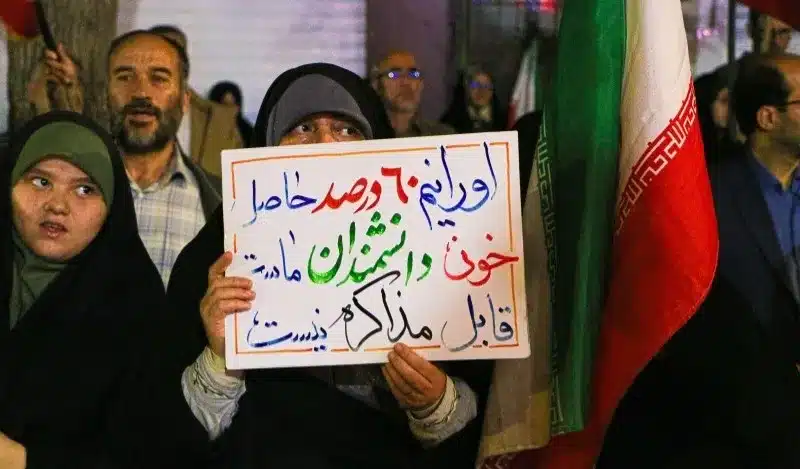 اورانیم ٦٠ درصد حاصل
خون دانشمندان ماست
قابل مذاکره نیست